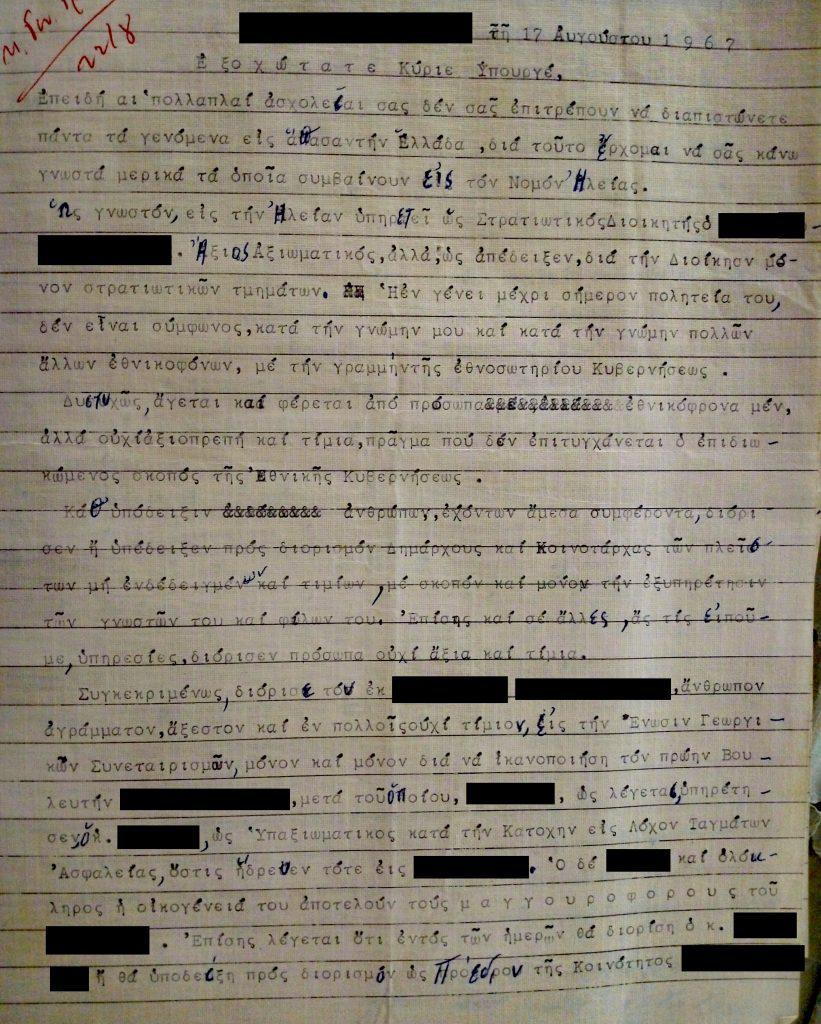 22/8
τῆ 17 Αὐγούστου 1 9 6 7
Ἐ ξ ο χ ώ τ α τ ε Κύριε Ὑπουργέ,
Ἐπειδή αι πολλαπλαί ἀσχολεῖαι σας δέν σᾶς ἐπιτρέπουν νά διαπιστώνετε
πάντα τά γενόμενα εἰς ἅπασαντήν Ἑλλάδα ,διά τοῦτο ἔρχομαι νά σᾶς κάνω
γνωστά μερικά τά ὁποῖα συμβαίνουν εἰς τόν Νομόν Ἠλείας.
Ὡς γνωστόν, εἰς τήν Ἠλείαν ὑπηρετεῖ ὡς ΣτρατιωτικόςΔιοικητής ὁ
. Ἄξιος Ἀξιωματικός,ἀλλά, ὡς ἀπέδειξεν,διά τήν Διοίκησν μό-
νον στρατιωτικῶν τμημάτων. Ἡἐν γένει μέχρι σήμερον πολητεία του,
δέν εἶναι σύμφωνος,κατά τήν γνώμην μου καί κατά τήν γνώμην πολλῶν
ἄλλων ἐθνικοφόνων, μέ τήν γραμμήντῆς ἐθνοσωτηρίου Κυβερνήσεως .
Δυστυχῶς,ἄγεται καί φέρεται ἀπό πρόσωπα ἐθνικόφρονα μέν,
ἀλλά οὐχίἀξιοπρεπή καί τίμια,πρᾶγμα πού δέν ἐπιτυγχάνεται ὁ ἐπιδιω -
κώμενος σκοπός τῆς Ἐθνικῆς Κυβερνήσεως .
Καθ ὑπόδειξιν ἀνθρώπων,ἐχόντων ἄμεσα συμφέροντα,διόρι
σεν ἤ ὑπέδειξεν πρός διορισμόν Δημάρχους καί Κοινοτάρχας τῶν πλείσ
των μή ἐνδεδειγμένων καί τιμίων ,μέ σκοπόν καί μόνον τήν ἐξυπηρέτησιν
τῶν γνωστῶν του καί φίλων του. Ἐπίσης καί σέ ἄλλες ,ἄς τίς εἰποῦ-
με,ὑπηρεσίες,διόρισεν πρόσωπα οὐχί ἄξια καί τίμια.
Συγκεκριμένως, διόρισε τόν ἐκ ,ἄνθρωπον
ἀγράμματον,ἄξεστον καί ἐν πολλοῖςοὐχί τίμιον, εἰς τήν Ἕνωσιν Γεωργι -
κῶν Συνεταιρισμῶν,μόνον καί μόνον διά νά ἱκανοποιήση τόν πρώην Βου -
λευτήν ,μετά τοῦὁποίου, , ὡς λέγεται,ὑπηρέτη -
σενὁκ. ,ὡς Ὑπαξιωματικος κατά τήν Κατοχην εἰς Λόχον Ταγμάτων
Ἀσφαλείας,ὅστις ἥδρευεν τότε εἰς . Ὁ δέ καί ὁλόκ-
ληρος ἡ οἰκογένειά του ἀποτελοῦν τούς μ α γ γ ο υ ρ ο φ ο ρ ο υ ς τοῦ
. Ἐπίσης λέγεται ὅτι ἐντός τῶν ἡμερῶν θά διορίση ὁ κ.
ἤ θά ὑποδείξη πρός διορισμόν ὡς Πρόεδρον τῆς Κοινότητος